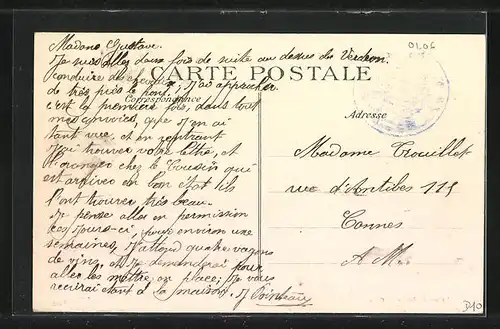 Madame Gustave.
Je suis allez deux fois de suite au dessus de Verdun.
Conduire des chevaux, J'ai approcher
CARTE POSTALE
de très près le front,
Correspondance
c'est la première fois, dans tout
mes convois, que J'en ai
tant vue, et en rentrant
J'ai trouver votre lettre, et
l'oranger chez le Cousin qui
est arriver en bon état ils
l'ont trouver très beau.
Je pense allez en permission
ces Jours-ci, pour environ une
semaines, J'attend quatre wagons
de vins, et Je demanderai pour
allez les mettre en place; Je vous
écrirai étant à la maison. J. Pointeau
Adresse
Madame Trouillet
rue d'Antibes 115
Cannes
A. M.
0106
D10